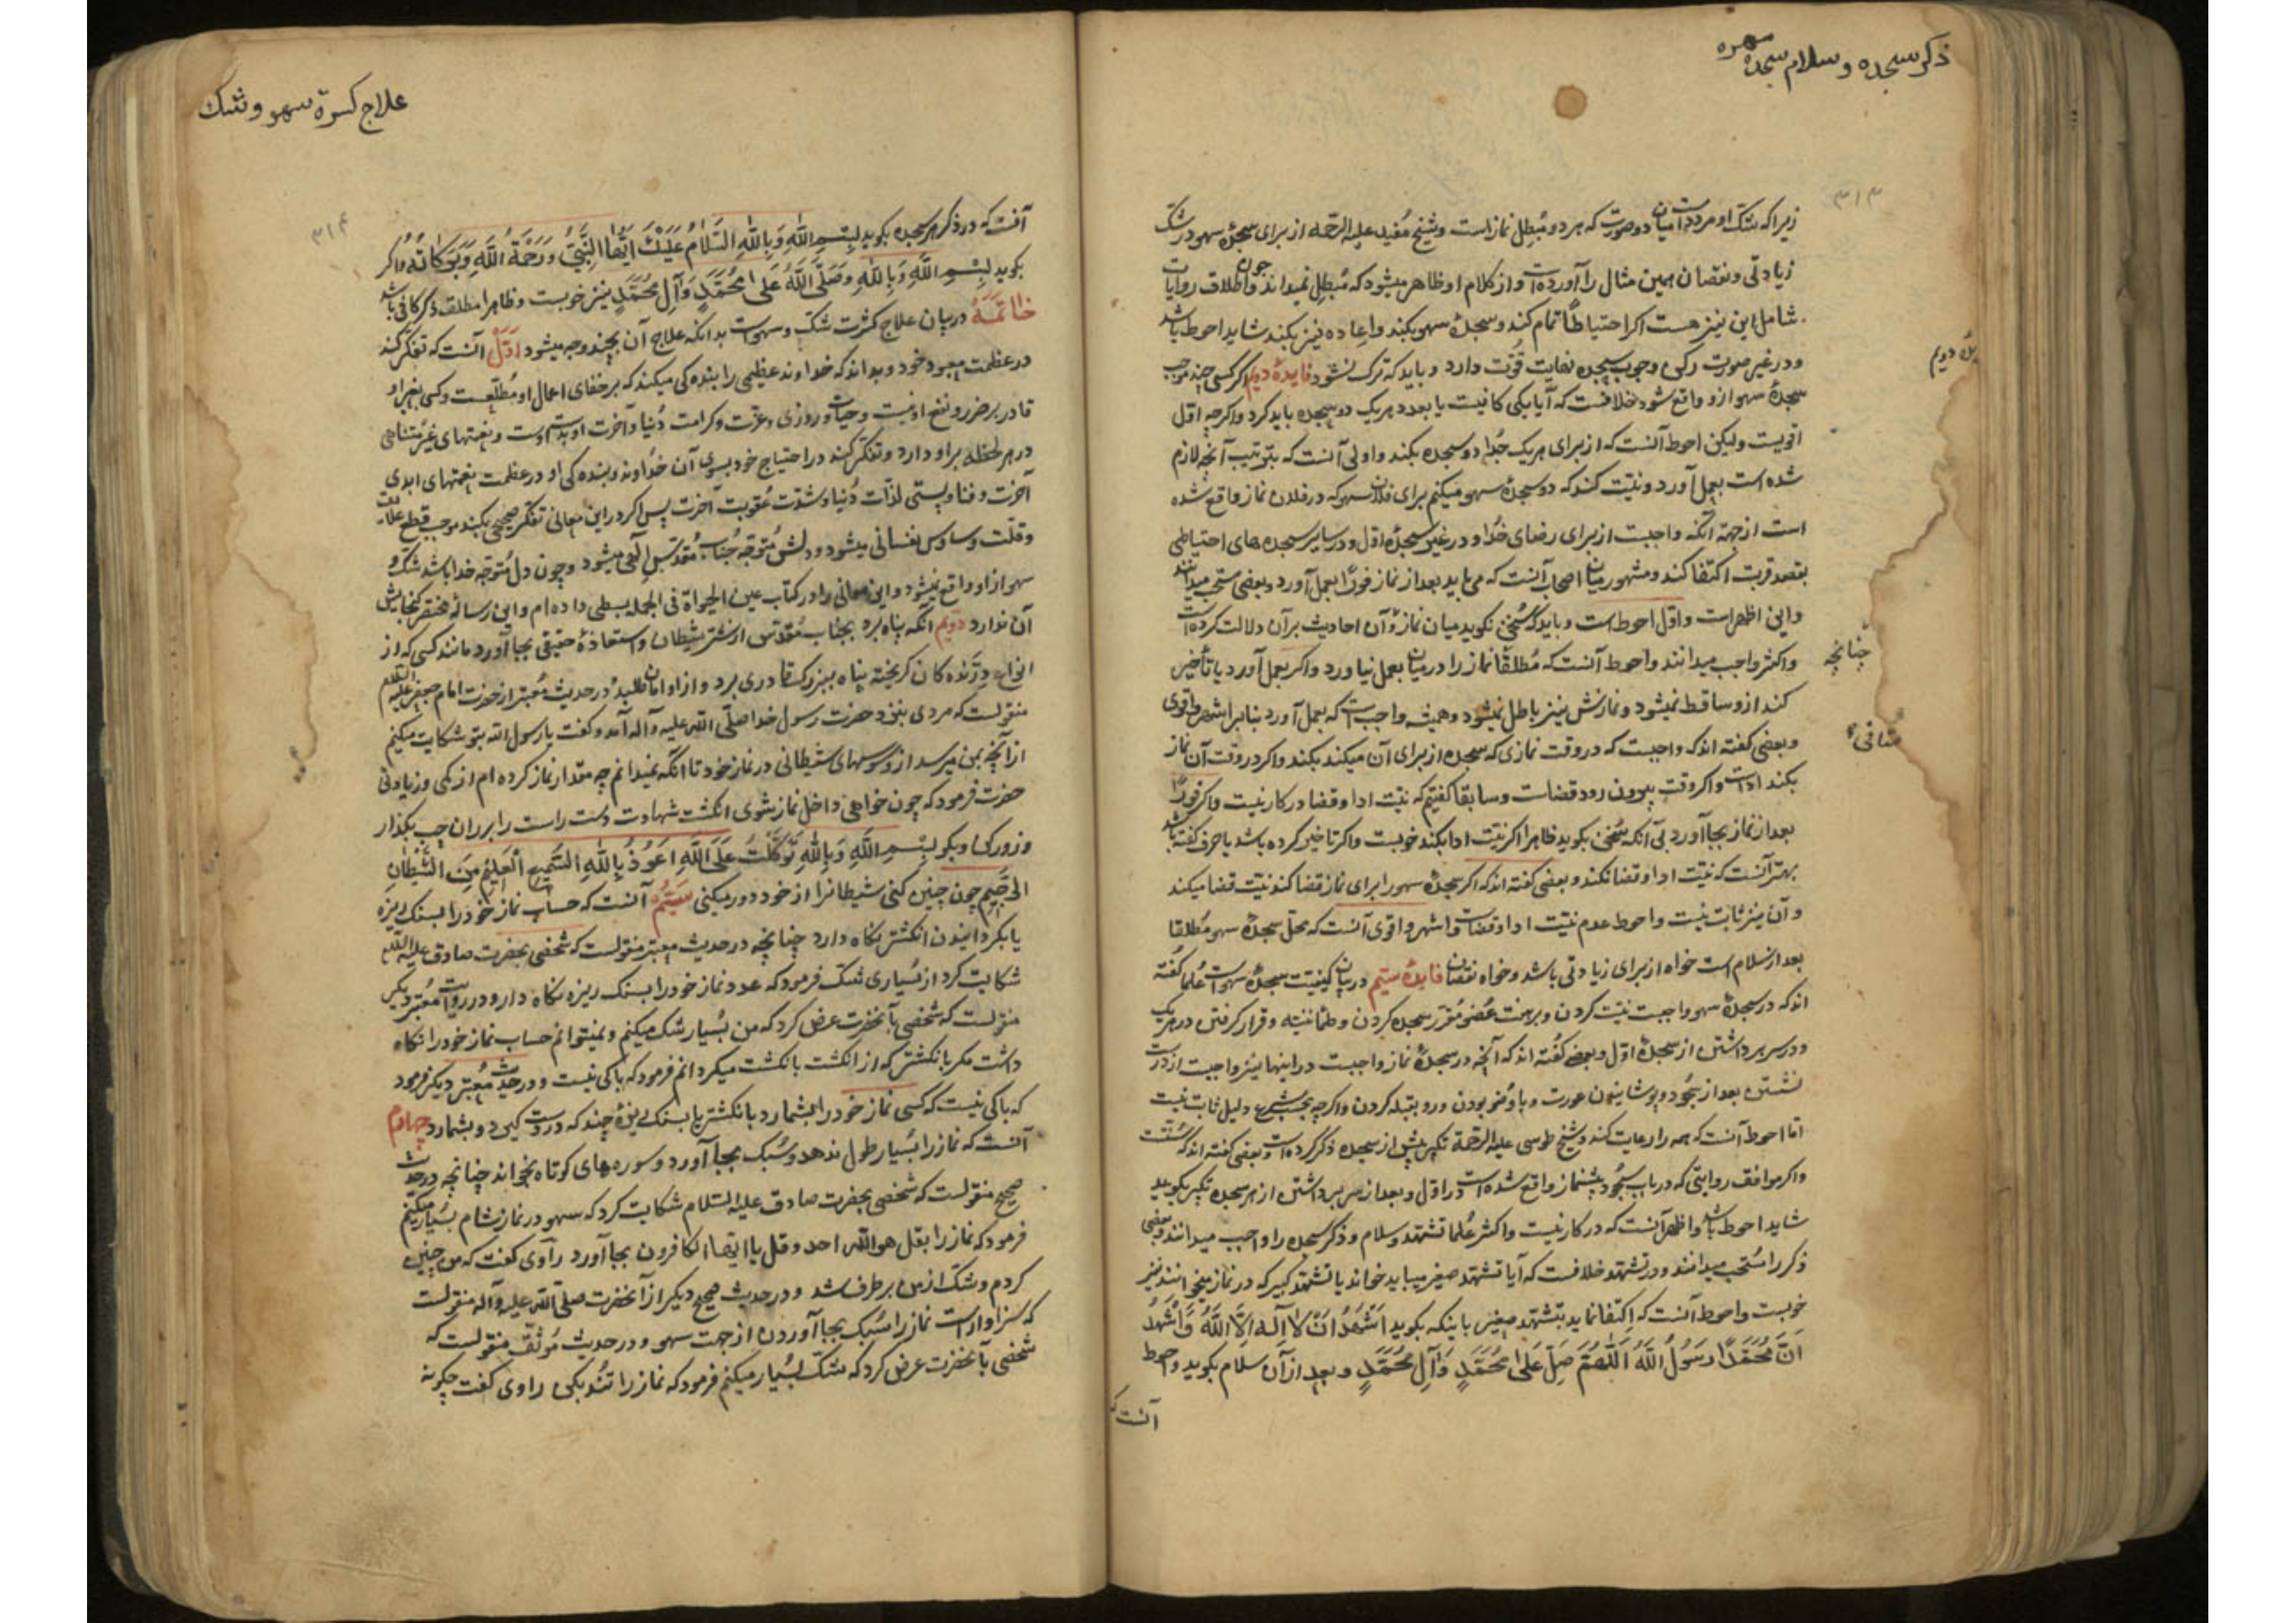 ذکر سجده و سلام سجده سهو
۳۱۳
زیرا که شک او مردد است میان دو صورت که هر دو مبطل نماز است و شیخ مفید علیه الرحمه از برای سجدهٔ سهو در شک
زیادتی و نقصان همین مثال را آورده است و از کلام او ظاهر میشود که مبطل نمیداند و چون اطلاق روایات
شامل این نیز هست اکر احتیاطًا تمام کند و سجدهٔ سهو بکند و اعاده نیز بکند شاید احوط باشد
و در غیر صورت رکن وجوب سجده نهایت قوّت دارد و باید که ترک نشود فایدهٔ دویم اکر کسی چند موجب
سجدهٔ سهو ازو واقع شود خلافست که آیا یکی کافیست یا بعدد هر یک دو سجده باید کرد و اکرچه اوّل
اقویست ولیکن احوط آنست که از برای هر یک جُدا دو سجده بکند و اولی آنست که بترتیب آنچه لازم
شده است بعمل آورد و نیّت کند که دو سجدهٔ سهو میکنم برای فلان سهو که در فلان نماز واقع شده
است از جهة آنکه واجبست از برای رضای خُدا و در غیر سجدهٔ اوّل و در سایر سجده های احتیاطی
بقصد قربت اکتفا کند و مشهور میان اصحاب آنست که می باید بعد از نماز فورًا بعمل آورد و بعضی مستحب میدانند
و این اظهر است و اوّل احوط است و باید که سُخن نکوید میان نماز و آن احادیث بر آن دلالت کرده است
و اکثر واجب میدانند و احوط آنست که مُطلقًا نماز را در میان بعمل نیاورد و اکر بعمل آورد یا تأخیر
کند ازو ساقط نمیشود و نمازش نیز باطل نمیشود و همیشه واجب است که بعمل آورد بنا بر اشهر و اقوی
و بعضی کفته اند که واجبست که در وقت نمازی که سجده از برای آن میکند بکند و اکر در وقت آن نماز
بکند اداست و اکر وقت بیرون رود قضاست و سابقا کفتیم که نیّت ادا و قضا در کار نیست و اکر فورًا
بعد از نماز بجا آورد بی آنکه سُخن بکوید ظاهرا اکر نیّت ادا بکند خوبست و اکر تاخیر کرده باشد یا حرف کفته باشد
بهتر آنست که نیّت ادا و قضا نکند و بعضی کفته اند که اکر سجدهٔ سهو را برای نماز قضا کند نیّت قضا میکند
و آن نیز ثابت نیست و احوط عدم نیّت ادا و قضاست و اشهر و اقوی آنست که محلّ سجدهٔ سهو مُطلقا
بعد از سلام است خواه از برای زیادتی باشد و خواه نقصان فایدهٔ سیّم در بیان کیفیّت سجدهٔ سهو است عُلما کفته
اند که در سجدهٔ سهو واجبست نیّت کردن و بر هفت عُضو مُقرّر سجده کردن و طُمأنینه و قرار کرفتن در هر یک
و در سر برداشتن از سجدهٔ اوّل و بعضی کفته اند که آنچه در سجدهٔ نماز واجبست در اینها نیز واجبست از درست
نشستن بعد از سجُود و پوشانیدن عورت و با وُضو بودن و رو بقبله کردن و اکرچه بحسب شرع دلیل ثابت نیست
امّا احوط آنست که همه را رعایت کند و شیخ طوسی علیه الرّحمة تکبیر پیش از سجده ذکر کرده است و بعضی کفته اند که سُنّتست
و اکر موافق روایتی که در باب سجُود پیشنماز واقع شده است در اوّل و بعد از سر برداشتن از هر سجده تکبیر بکوید
شاید احوط باشد و اظهر آنست که در کار نیست و اکثر عُلما تشهّد و سلام و ذکر سجده را واجب میدانند و بعضی
ذکر را مُستحب میدانند و در تشهّد خلافست که آیا تشهّد صغیر میباید خواند یا تشهّد کبیر که در نماز میخوانند نیز
خوبست و احوط آنست که اکتفا نماید بتشهّد صغیر باینکه بکوید اَشْهَدُ اَنْ لا اِلٰهَ اِلَّا اللّٰهُ وَ اَشْهَدُ
اَنَّ مُحَمَّدًا رَسُولُ اللّٰهِ اَللّٰهُمَّ صَلِّ عَلٰی مُحَمَّدٍ وَ آلِ مُحَمَّدٍ و بعد از آن سلام بکوید و احوط
آنست که
چنانچه
منافی
علاج کثرة سهو و شک
۳۱۴
آنست که در ذکر هر سجده بکوید بِسْمِ اللّٰهِ وَ بِاللّٰهِ اَلسَّلامُ عَلَیْکَ اَیُّهَا النَّبِیُّ وَ رَحْمَةُ اللّٰهِ وَ بَرَکاتُهُ و اکر
بکوید بِسْمِ اللّٰهِ وَ بِاللّٰهِ وَ صَلَّی اللّٰهُ عَلٰی مُحَمَّدٍ وَ آلِ مُحَمَّدٍ نیز خوبست و ظاهرا مطلق ذکر کافی باشد
خاتمه در بیان علاج کثرت شک و سهو است بدانکه علاج آن بچند وجه میشود اوّل آنست که تفکّر کند
در عظمت معبود خود و بداند که خداوند عظیمی را بنده کی میکند که بر خفای اعمال او مُطّلعست و کسی بغیر او
قادر بر ضرر و نفع او نیست و حیات و روزی و عزّت و کرامت دُنیا و آخرت او بدست اوست و نعمتهای غیر مُتناهی
در هر لحظه بر او دارد و تفکّر کند در احتیاج خود بسوی آن خداوند و بنده کی او در عظمت نعمتهای ابدی
آخرت و فنا و پستی لذّات دُنیا و شدّت عُقوبت آخرت پس اکر در این معانی تفکّر صحیحی بکند موجب قطع علاقه
و قلّت وساوس نفسانی میشود و دلش مُتوجّه جناب مُقدّس الٰهی میشود و چون دل مُتوجّه خدا باشد شک و
سهو از او واقع نمیشود و این معانی را در کتاب عین الحیٰوة فی الجمله بسطی داده ام و این رسالهٔ مختصر کنجایش
آن ندارد دویم آنکه پناه برد بجناب مُقدّس از شرّ شیطان و استعاذهٔ حقیقی بجا آورد مانند کسی که از
انواع درّنده کان کریخته پناه ببزرک قادری برد و از او امان طلبد و در حدیث مُعتبر از حضرت امام جعفر علیه السّلام
منقولست که مردی بنزد حضرت رسول خدا صلّی اللّه علیه و آله آمد و کفت یا رسول اللّه بتو شکایت میکنم
از آنچه بمن میرسد از وسوسهای شیطانی در نماز خود تا آنکه نمیدانم چه مقدار نماز کرده ام از کمی و زیادتی
حضرت فرمود که چون خواهی داخل نماز بشوی انکشت شهادت دست راست را بر ران چپ بکذار
و زور کن و بکو بِسْمِ اللّٰهِ وَ بِاللّٰهِ تَوَکَّلْتُ عَلَی اللّٰهِ اَعُوذُ بِاللّٰهِ السَّمیعِ الْعَلیمِ مِنَ الشَّیْطٰانِ
الرَّجیمِ چون چنین کنی شیطانرا از خود دور میکنی سیّم آنست که حساب نماز خود را بسنک ریزه
یا بکردانیدن انکشتر نکاه دارد چنانچه در حدیث معتبر منقولست که شخصی بحضرت صادق علیه السّلام
شکایت کرد از بُسیاری شک فرمود که عدد نماز خود را بسنک ریزه نکاه دار و در روایت مُعتبر دیکر
منقولست که شخصی بآنحضرت عرض کرد که من بُسیار شک میکنم و نمیتوانم حساب نماز خود را نکاه
داشت مکر بانکشتر که از انکشت بانکشت میکردانم فرمود که باکی نیست و در حدیث مُعتبر دیکر فرمود
که باکی نیست که کسی نماز خود را بشمارد بانکشتر یا بسنک ریزهٔ چند که در دست کیرد و بشمارد چهارم
آنست که نماز را بُسیار طول ندهد و سُبک بجا آورد و سوره های کوتاه بخواند چنانچه در حدیث
صحیح منقولست که شخصی بحضرت صادق علیه السّلام شکایت کرد که سهو در نماز شام بُسیار میکنم
فرمود که نماز را بقل هو اللّه احد و قل یا ایّها الکافرون بجا آورد راوی کفت که من چنین
کردم و شک از من برطرف شد و در حدیث صحیح دیکر از آنحضرت صلّی اللّه علیه و آله منقولست
که سزاوار است نماز را سُبک بجا آوردن از جهت سهو و در حدیث مُوثّق منقولست که
شخصی بآنحضرت عرض کرد که شک بسُیار میکنم فرمود که نماز را تُند بکن راوی کفت چکونه